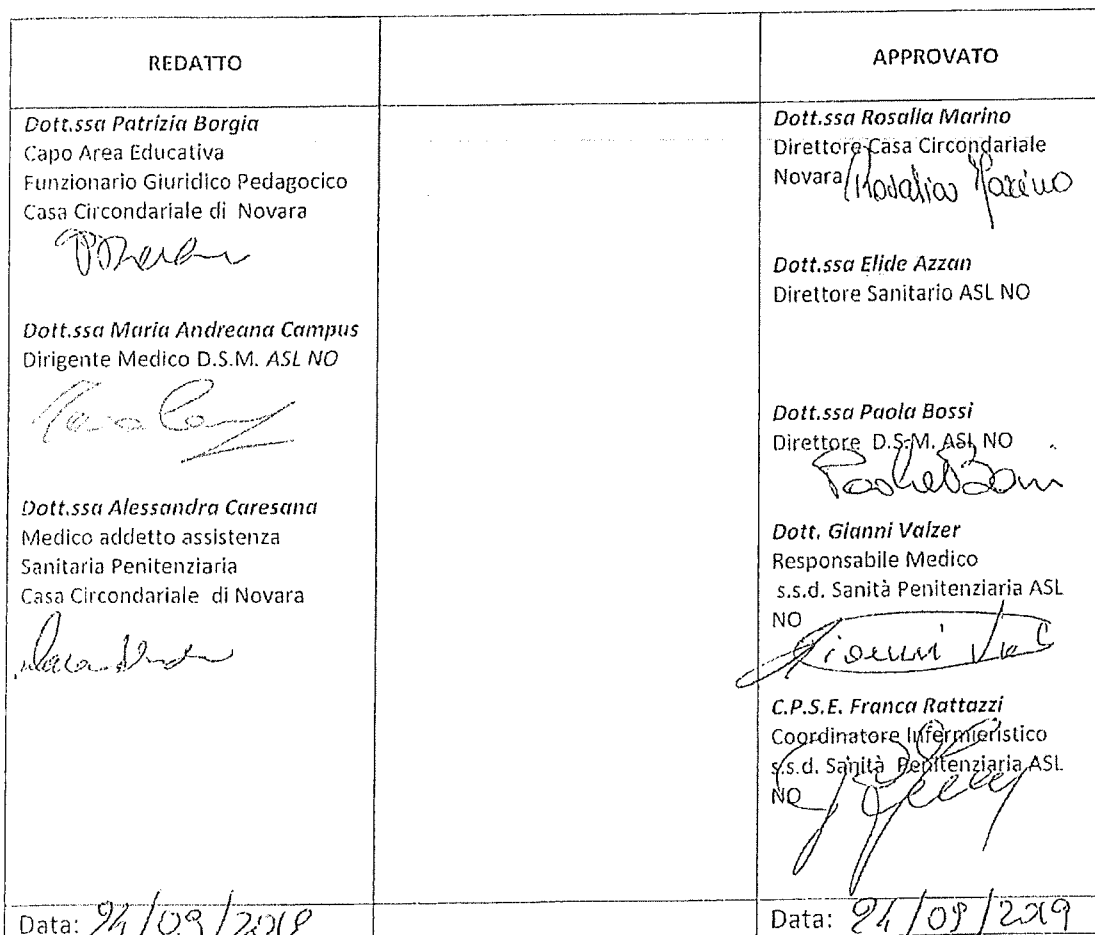 REDATTO
Dott.ssa Patrizia Borgia
Capo Area Educativa
Funzionario Giuridico Pedagocico
Casa Circondariale di Novara
Dott.ssa Maria Andreana Campus
Dirigente Medico D.S.M. ASL NO
Dott.ssa Alessandra Caresana
Medico addetto assistenza
Sanitaria Penitenziaria
Casa Circondariale di Novara
Data:
APPROVATO
Dott.ssa Rosalia Marino
Direttore Casa Circondariale
Novara Rosalia Marino
Dott.ssa Elide Azzan
Direttore Sanitario ASL NO
Dott.ssa Paola Bossi
Direttore D.S.M. ASL NO
Paola Bossi
Dott. Gianni Valzer
Responsabile Medico
s.s.d. Sanità Penitenziaria ASL
NO
Gianni
C.P.S.E. Franca Rattazzi
Coordinatore Infermieristico
s.s.d. Sanità Penitenziaria ASL
NO
Data: 24/09/2019